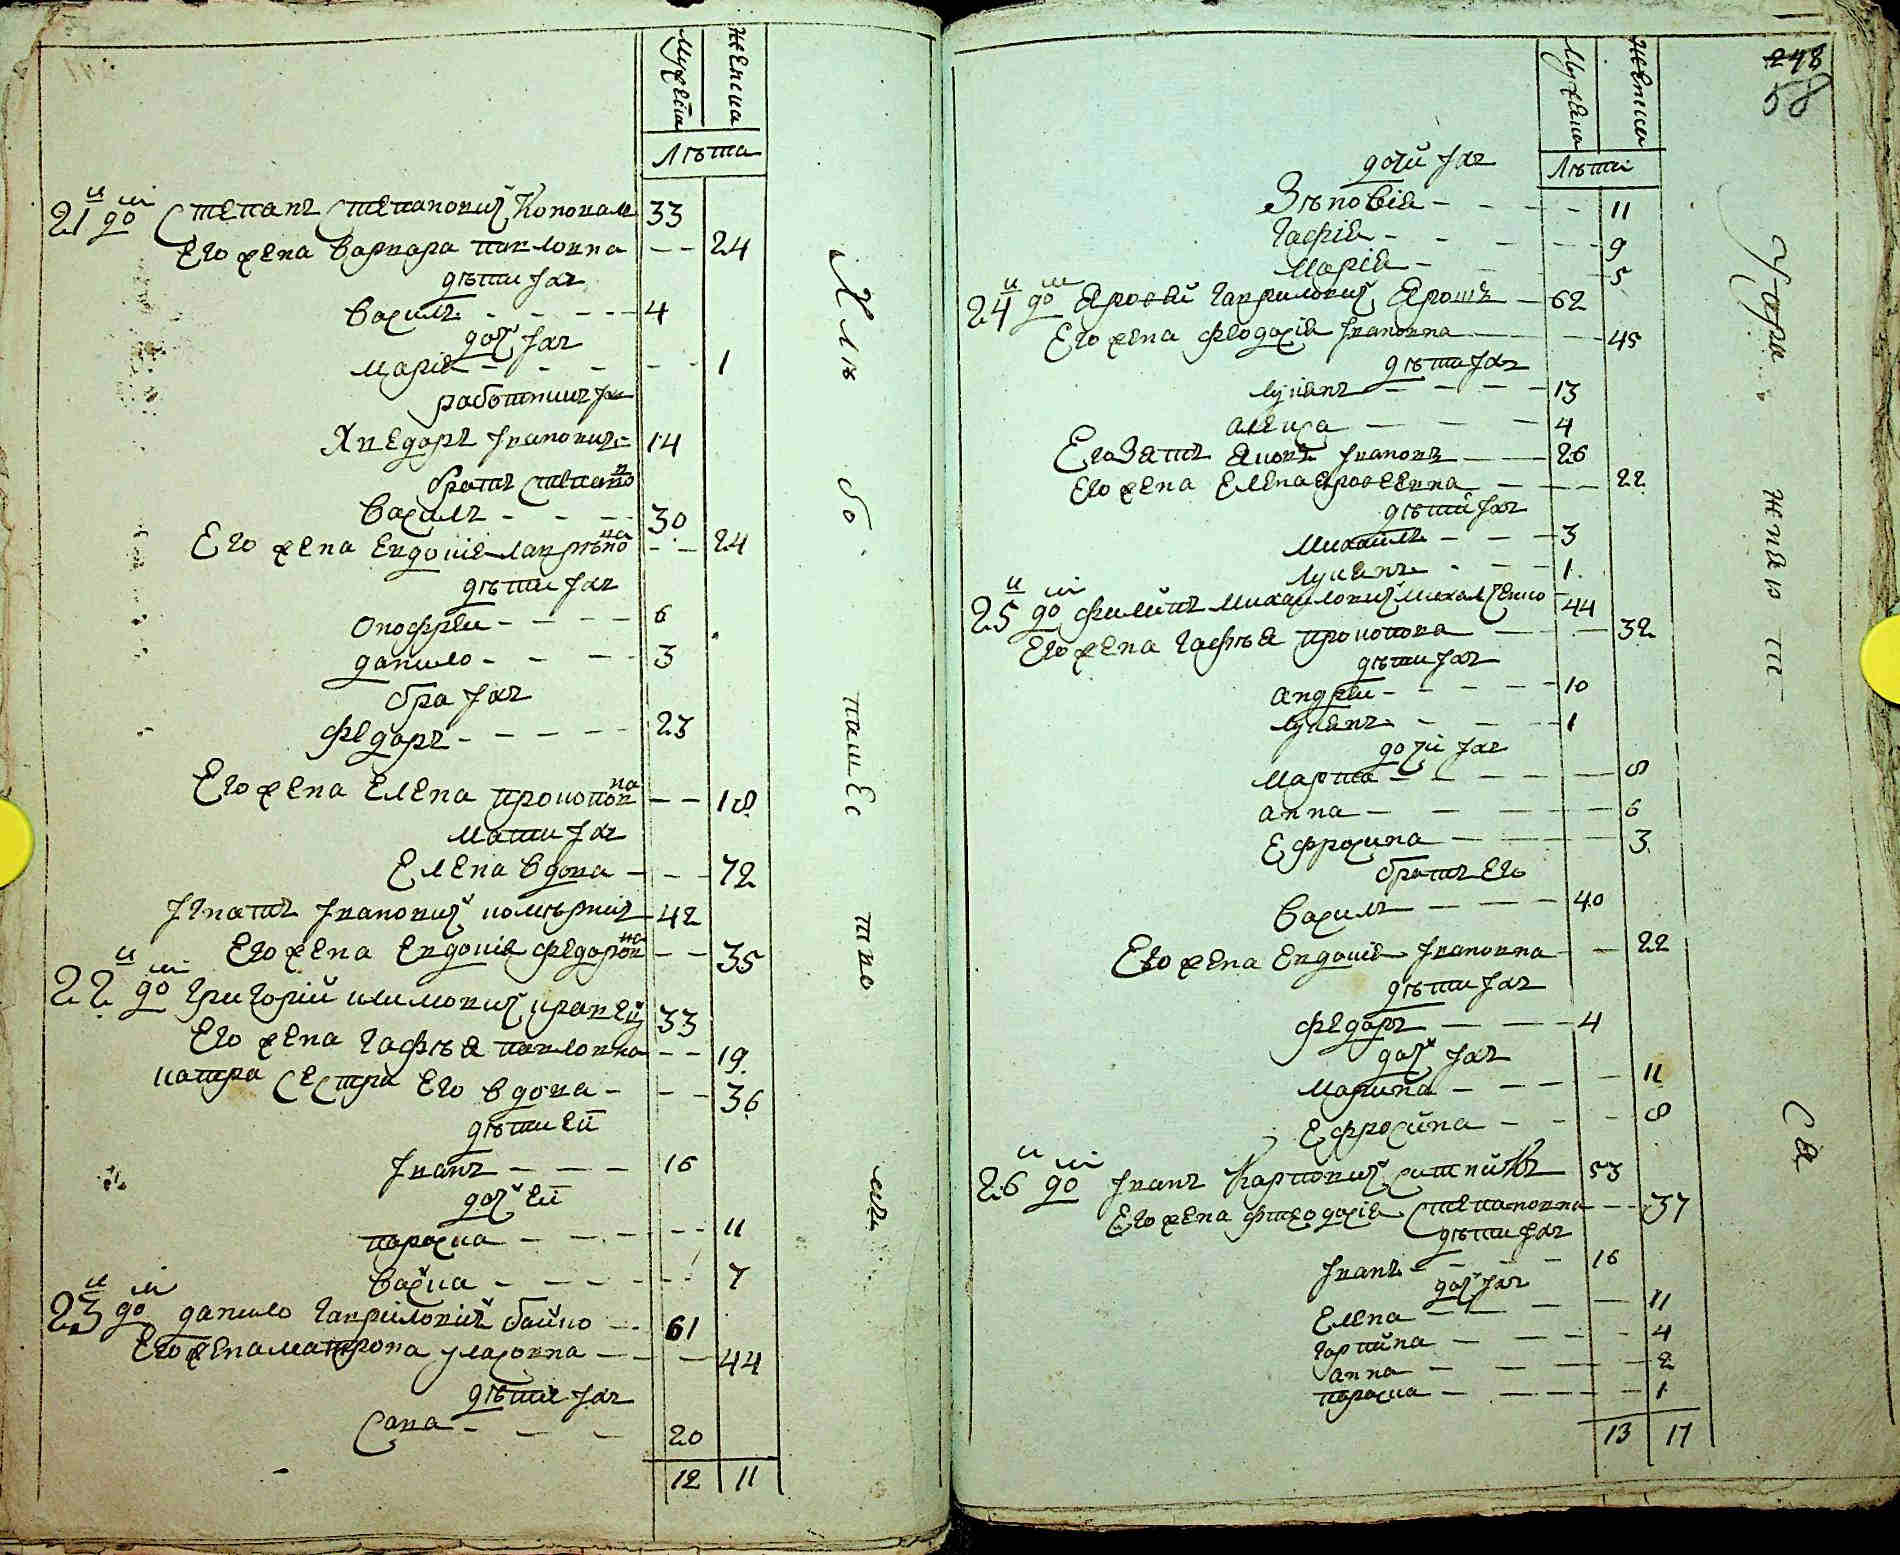 Мужеска Женска
Лѣта
21й дво Степанъ Степановичъ Коновалъ 33
Его жена Варвара Павловна 24
дѣти ихъ
Василъ 4
дочъ ихъ
Марія 1
работникъ их
Хведоръ Ивановичъ 14
братъ Степано
Василъ 30
Его жена Евдокія Лавренова 24
дѣти ихъ
Онофрей 6
Данило 3
бра ихъ
Федоръ 23
Его жена Елена Прокопова 18
мати ихъ
Елена вдова 72
Игнатъ Ивановичъ комѣрникъ 42
Его жена Евдокія Федоровна 35
22й дво Григорій Климовичъ Кравецъ 33
Его жена Гафѣя Павловна 19
сестра Его вдова 36
дѣти ей
Иванъ 16
дочъ ей
Параска 11
Васка 7
23й дво Данило Гавриловичъ Бойко 61
Его жена Матрона Уласовна 44
дѣти ихъ
Сава 20
12 11
Мужеска Женска
Лѣта
248
58
дочки ихъ
Зѣновія 11
Гафія 9
Марія 5
24й дво Яровѣй Гавриловичъ Ярошъ 62
Его жена Феодосія Ивановна 45
дѣти ихъ
Лукянъ 13
Алекса 4
Его Зятъ Яковъ Ивановъ 26
Его жена Елена 22
дѣти ихъ
Михайлъ 3
Лукянъ 1
25й дво Филипъ Михайловичъ Михалченко 44
Его жена Гафѣя Прокопова 32
дѣти ихъ
Андрей 10
Лукянъ 1
дочки ихъ
Марта 8
Анна 6
Ефросина 3
братъ Его
Василъ 40
Его жена Евдокія Ивановна 22
дѣти ихъ
Федоръ 4
дочъ ихъ
Марина 11
Ефросина 8
26й дво Иванъ Карповичъ Ситникъ 53
Его жена Фтеодосія Степановна 37
дѣти ихъ
Иванъ 16
дочъ ихъ
Елена 11
Горпина 4
Анна 2
Параска 1
13 17